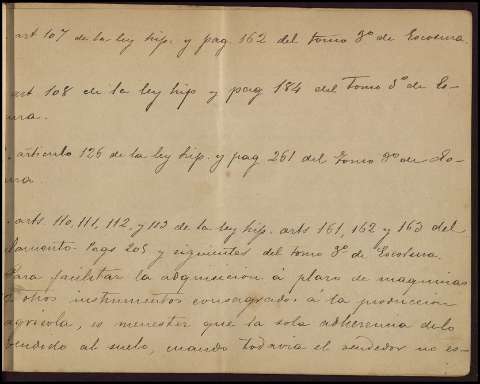 art 107 de la ley hip. y pag. 162 del tomo 3º de Escosura.
art 108 de la ley hip y pag 184 del Tomo 3º de Es-
ura.
articulo 126 de la ley hip. y pag 261 del Tomo 3º de Es-
ura.
arts. 110, 111, 112 y 113 de la ley hip. arts 161, 162 y 163 del
lamento. Pags 205 y siguientes del tomo 3º de Escosura.
Para facilitar la adquisicion á plazo de maquinas
otros instrumentos consagrados á la produccion
agricola, es menester que la sola adherencia de lo
vendido al suelo, cuando todavia el vendedor no es-